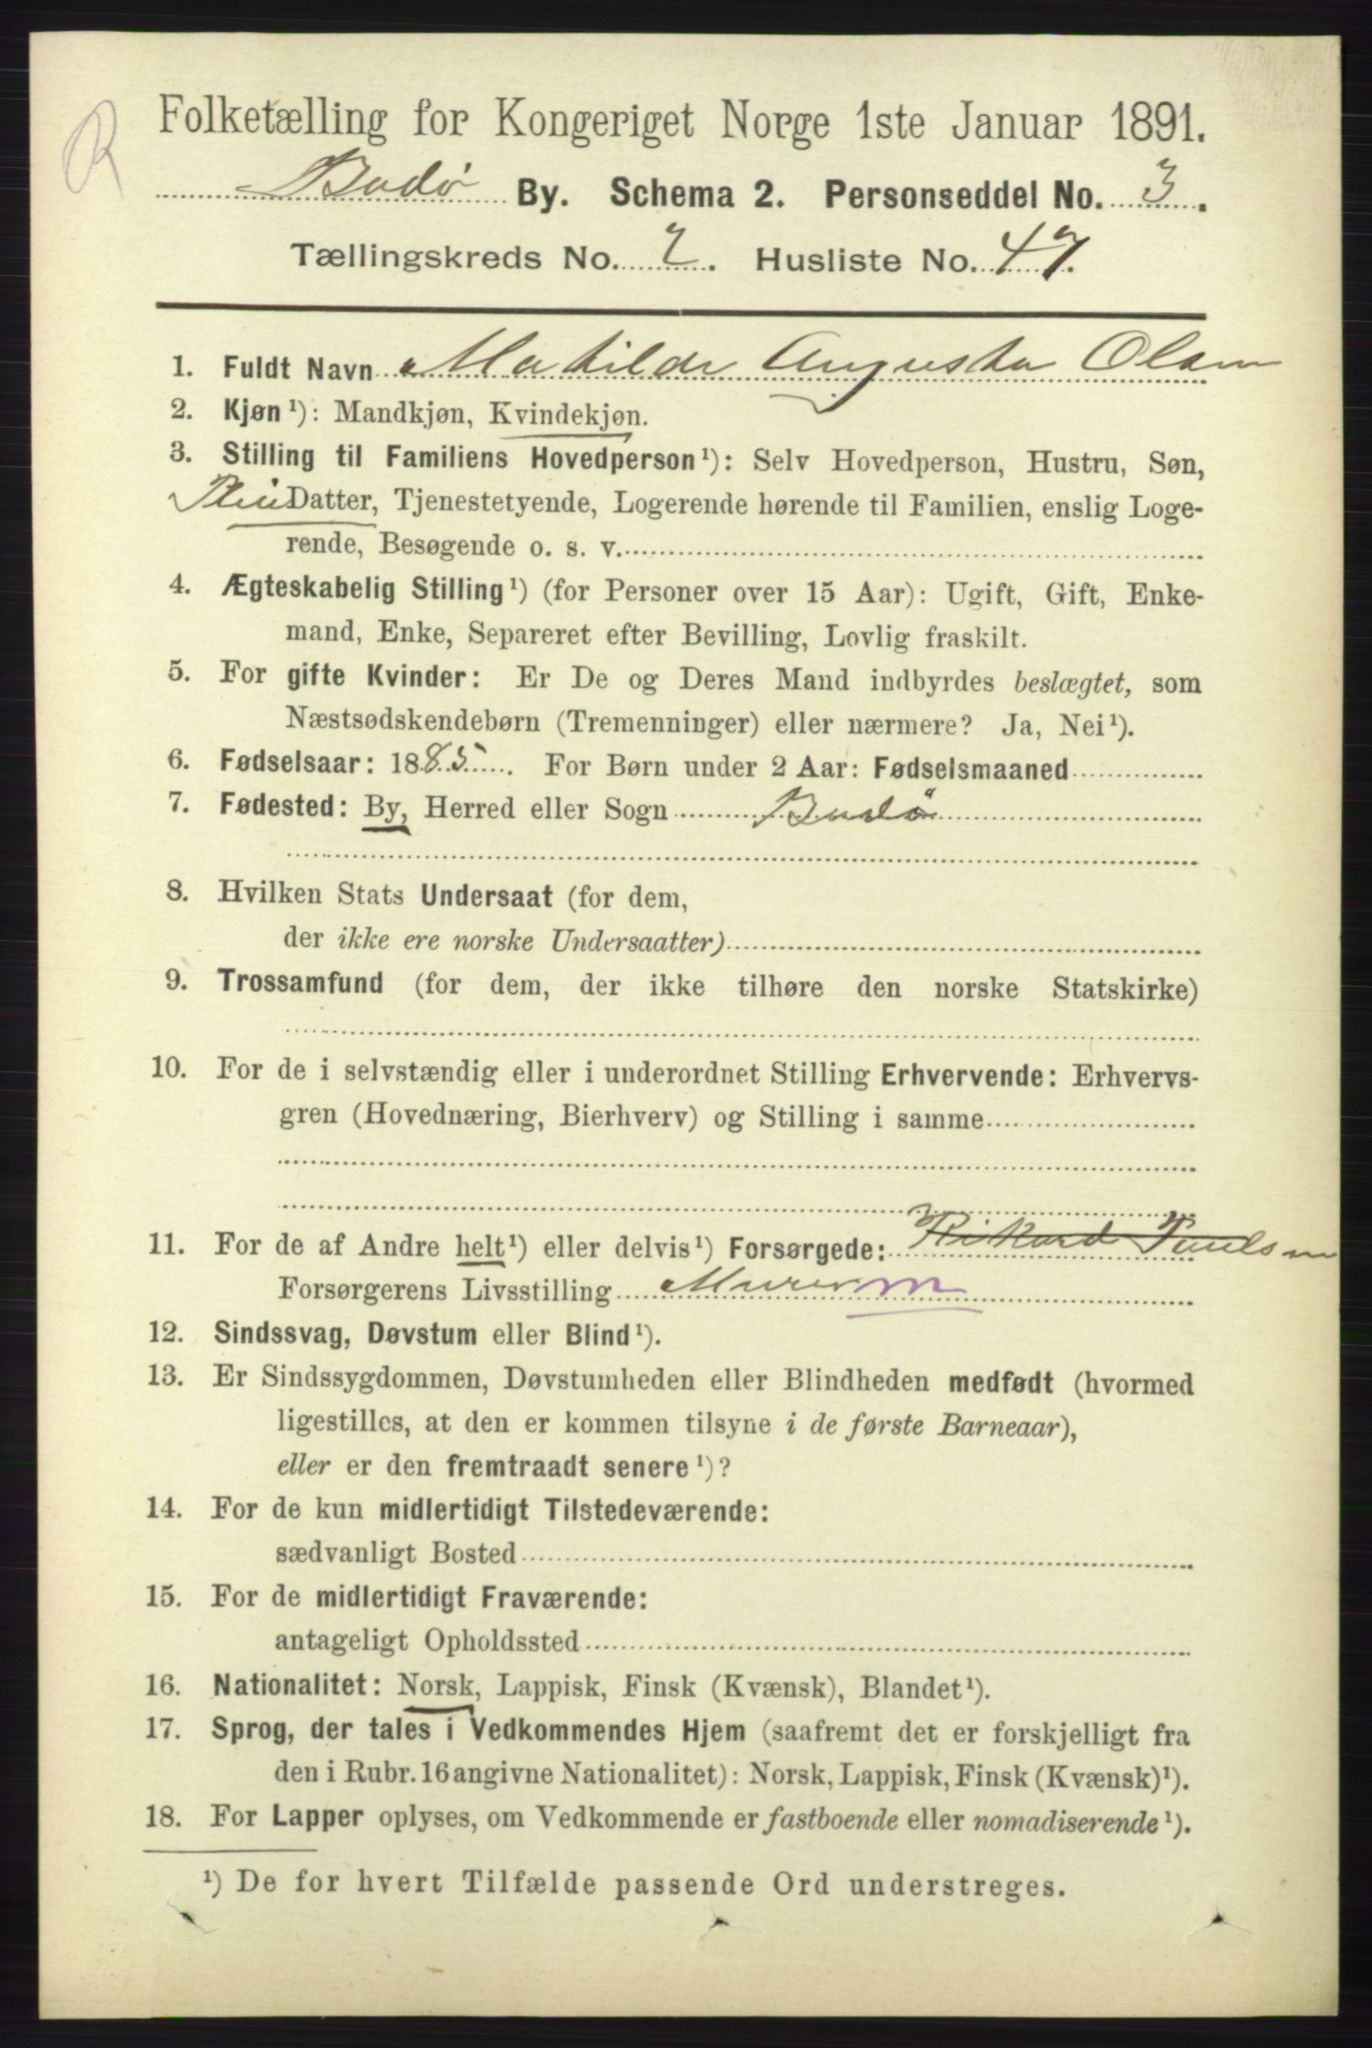 R
Folketælling for Kongeriget Norge 1ste Januar 1891.
Bodø By. Schema 2. Personseddel No. 3.
Tællingskreds No. 2. Husliste No. 47.
1. Fuldt Navn Mathilde Augusta Olsen
2. Kjøn¹): Mandkjøn, Kvindekjøn.
3. Stilling til Familiens Hovedperson¹): Selv Hovedperson, Hustru, Søn,
Pleie Datter, Tjenestetyende, Logerende hørende til Familien, enslig Loge-
rende, Besøgende o. s. v.
4. Ægteskabelig Stilling¹) (for Personer over 15 Aar): Ugift, Gift, Enke-
mand, Enke, Separeret efter Bevilling, Lovlig fraskilt.
5. For gifte Kvinder: Er De og Deres Mand indbyrdes beslægtet, som
Næstsødskendebørn (Tremenninger) eller nærmere? Ja, Nei¹).
6. Fødselsaar: 1885. For Børn under 2 Aar: Fødselsmaaned
7. Fødested: By, Herred eller Sogn Bodø
8. Hvilken Stats Undersaat (for dem,
der ikke ere norske Undersaatter)
9. Trossamfund (for dem, der ikke tilhøre den norske Statskirke)
10. For de i selvstændig eller i underordnet Stilling Erhvervende: Erhvervs-
gren (Hovednæring, Bierhverv) og Stilling i samme
11. For de af Andre helt¹) eller delvis¹) Forsørgede: Rikard Paulsen
Forsørgerens Livsstilling Murer m
12. Sindssvag, Døvstum eller Blind¹).
13. Er Sindssygdommen, Døvstumheden eller Blindheden medfødt (hvormed
ligestilles, at den er kommen tilsyne i de første Barneaar),
eller er den fremtraadt senere¹)?
14. For de kun midlertidigt Tilstedeværende:
sædvanligt Bosted
15. For de midlertidigt Fraværende:
antageligt Opholdssted
16. Nationalitet: Norsk, Lappisk, Finsk (Kvænsk), Blandet¹).
17. Sprog, der tales i Vedkommendes Hjem (saafremt det er forskjelligt fra
den i Rubr. 16 angivne Nationalitet): Norsk, Lappisk, Finsk (Kvænsk)¹).
18. For Lapper oplyses, om Vedkommende er fastboende eller nomadiserende¹).
¹) De for hvert Tilfælde passende Ord understreges.